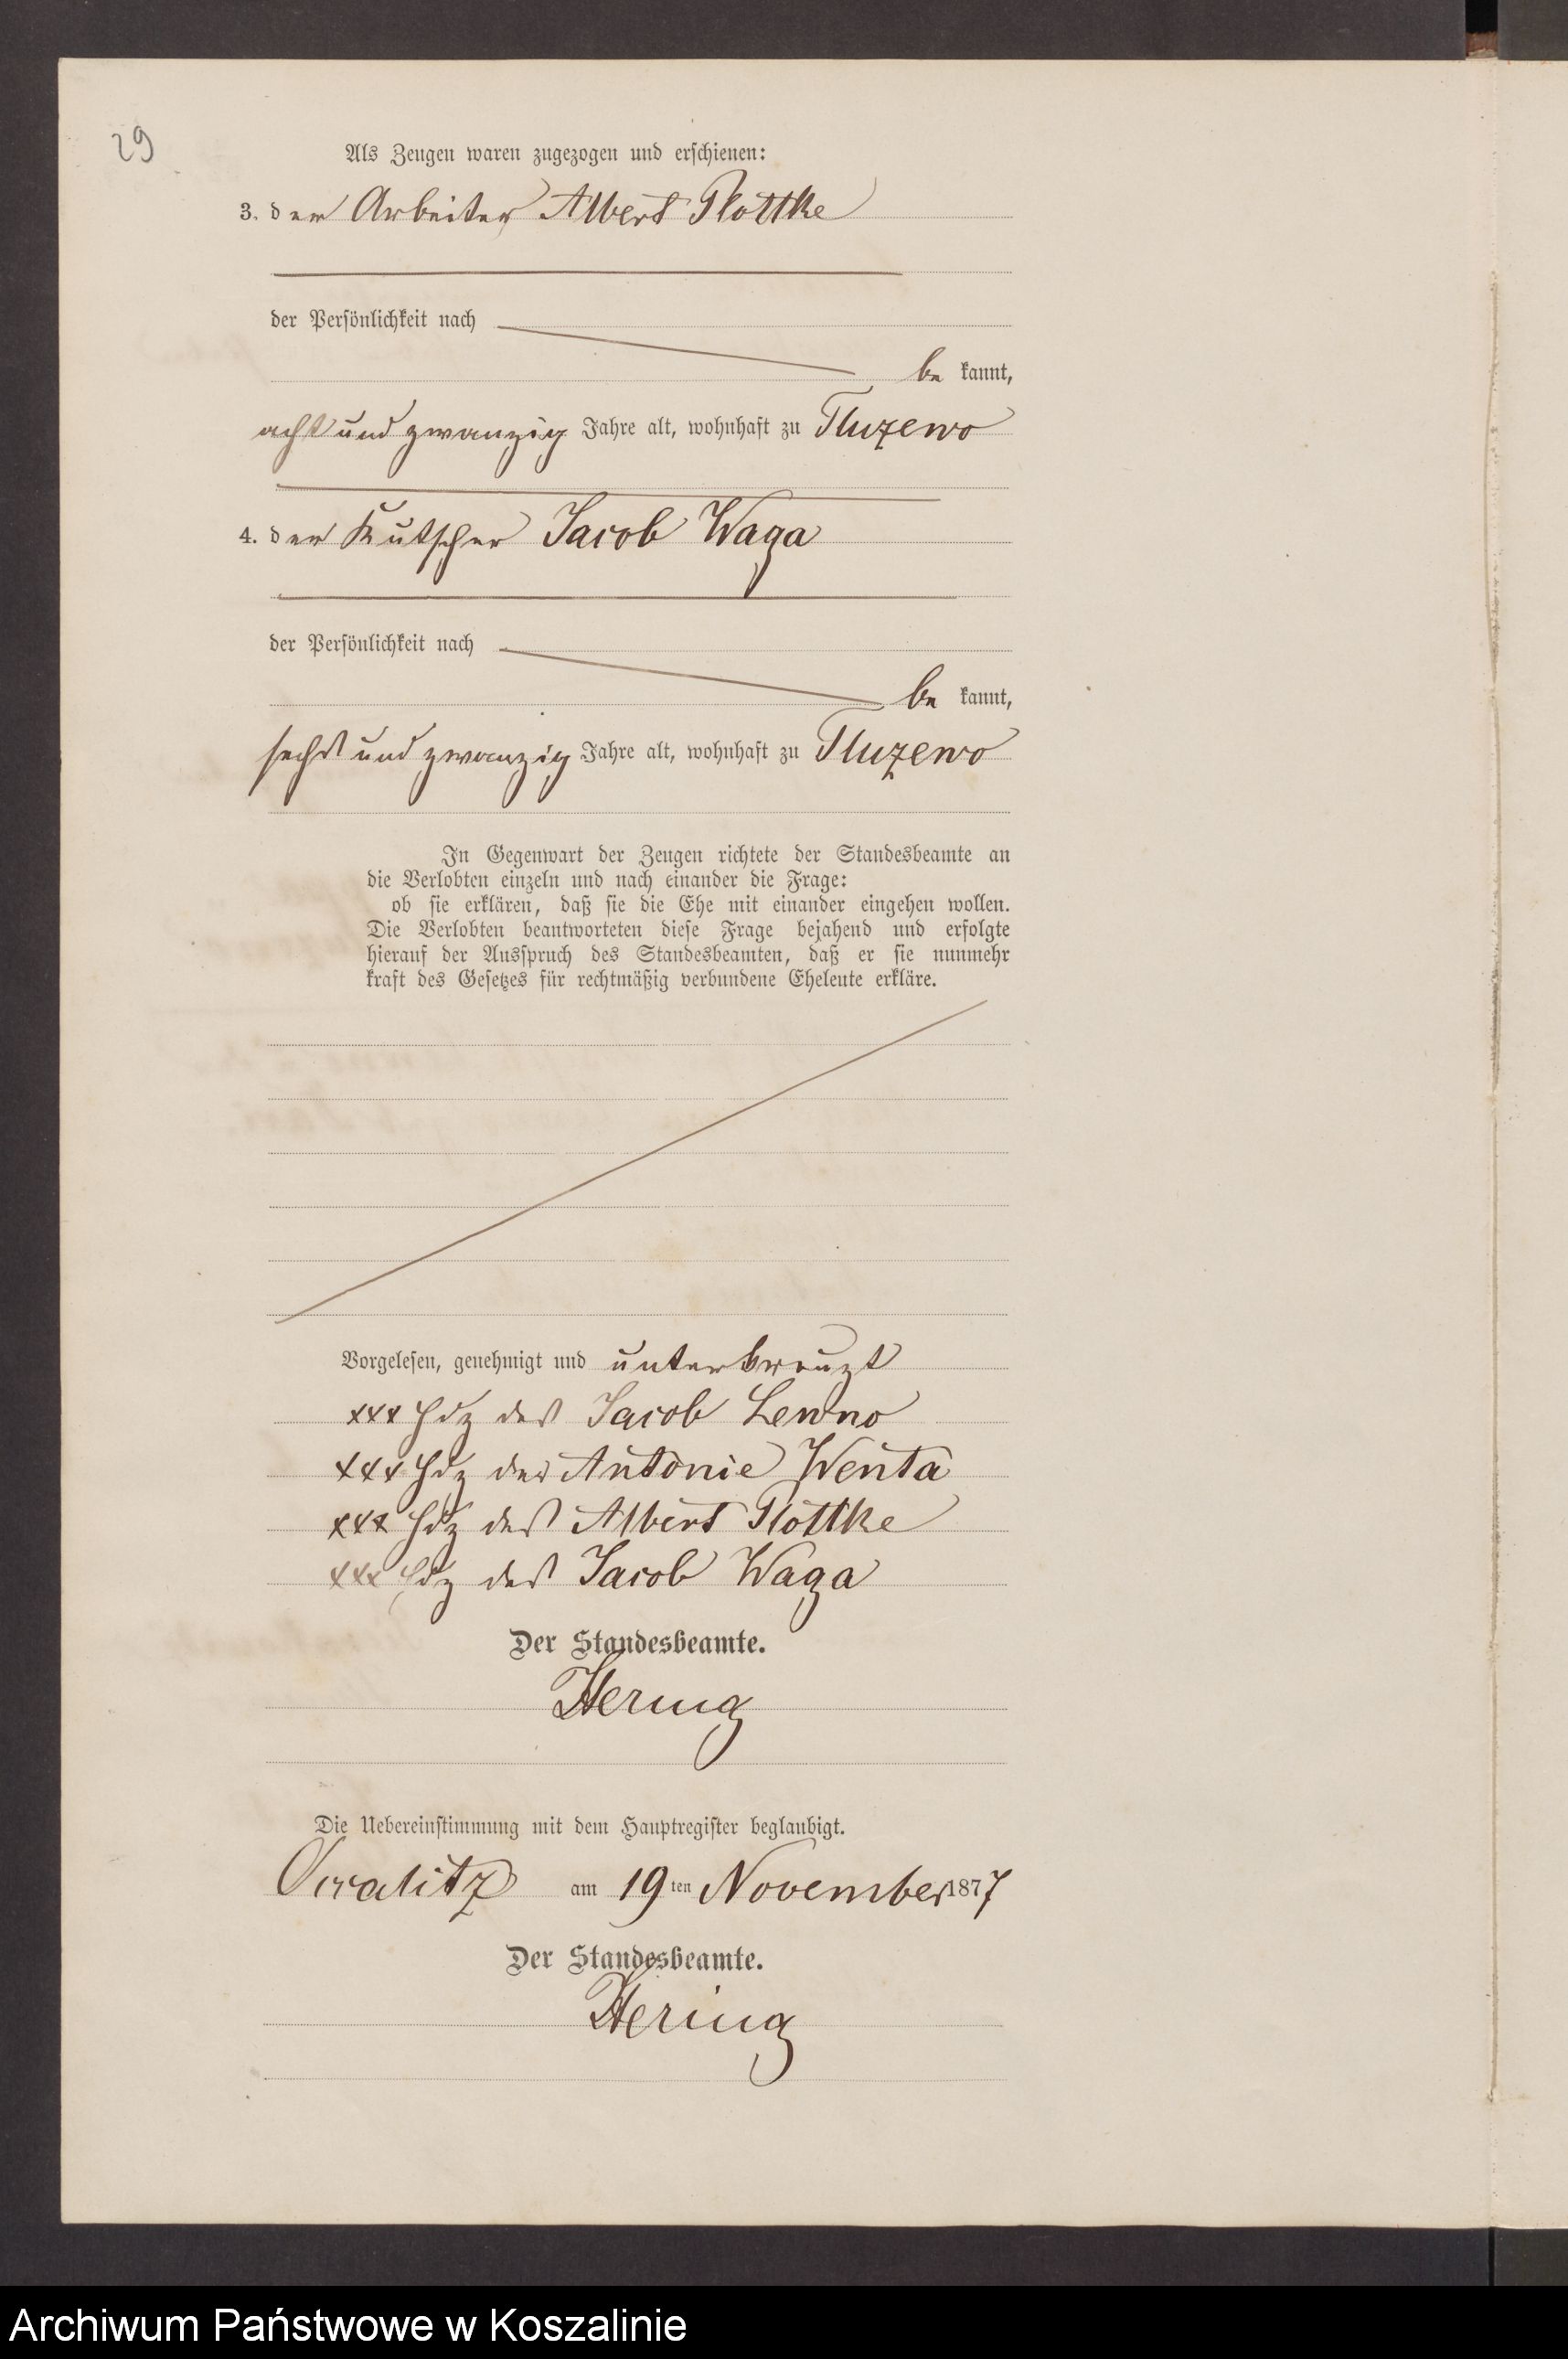 29
Als Zeugen waren zugezogen und erschienen:
3. der Arbeiter Albert Plottke
der Persönlichkeit nach
be kannt,
acht und zwanzig Jahre alt, wohnhaft zu Tluzewo
4. der Kutscher Jacob Waga
der Persönlichkeit nach
be kannt,
sechs und zwanzig Jahre alt, wohnhaft zu Tluzewo
In Gegenwart der Zeugen richtete der Standesbeamte an
die Verlobten einzeln und nach einander die Frage:
ob sie erklären, daß sie die Ehe mit einander eingehen wollen.
Die Verlobten beantworteten diese Frage bejahend und erfolgte
hierauf der Ausspruch des Standesbeamten, daß er sie nunmehr
kraft des Gesetzes für rechtmäßig verbundene Eheleute erkläre.
Vorgelesen, genehmigt und unterkreuzt
xxx Hdz des Jacob Lenno
xxx Hdz der Antonie Wenta
xxx Hdz des Albert Plottke
xxx Hdz des Jacob Waga
Der Standesbeamte.
Hering
Die Uebereinstimmung mit dem Hauptregister beglaubigt.
am 19 ten November 1877
Der Standesbeamte.
Hering
Archiwum Państwowe w Koszalinie